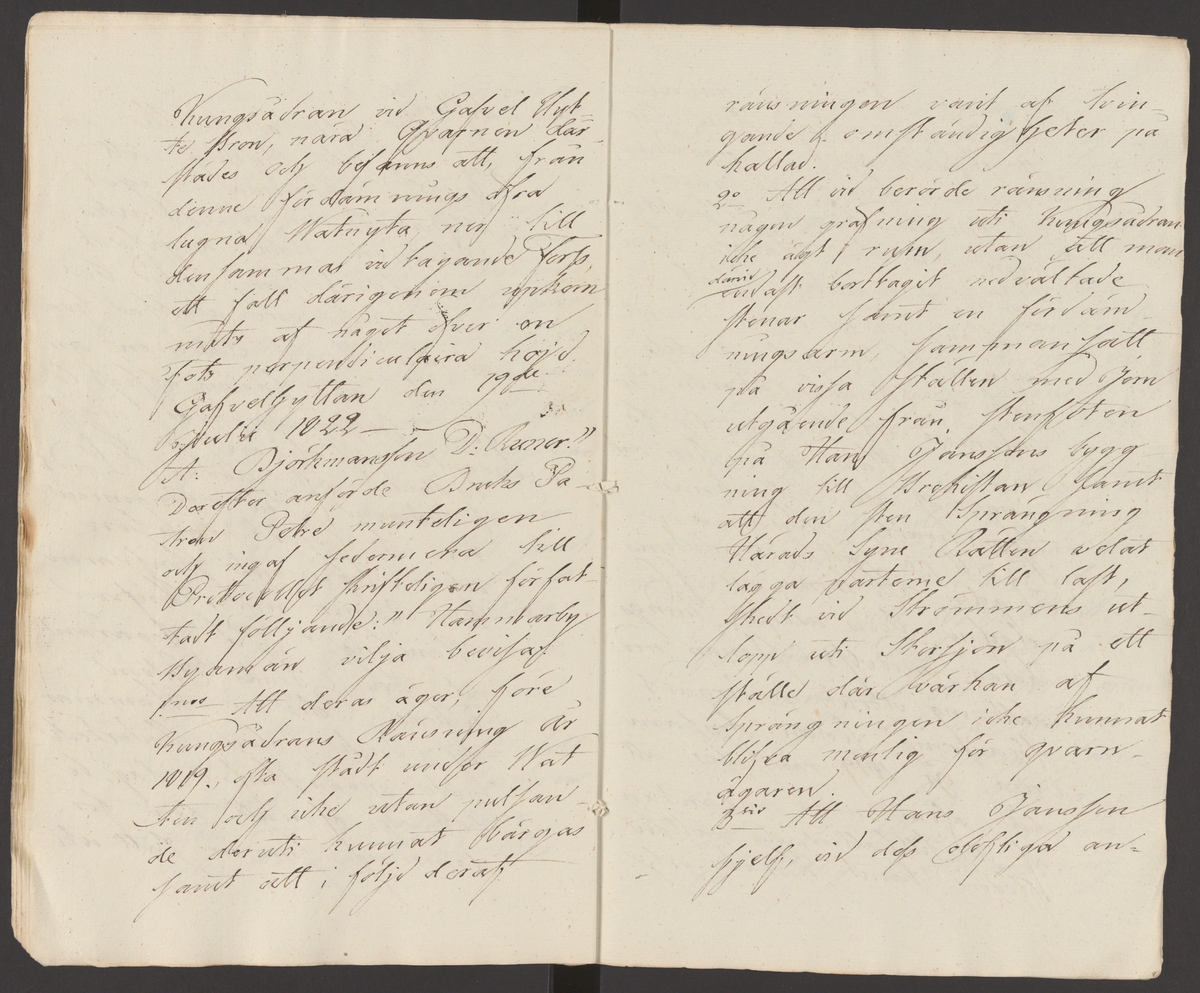 Kungsådran vid Gafvel Hyt-
te Bron, nära Qvarnen där
städes och befanns att, från
denne fördämnings öfra
lugna Watnyta ner till
densammas vidtagande Forss,
ett fall därigenom upkom
mits af något öfver en
fots perpendiculaira höjd.
Gafvelhyttan den 19de
Julii 1822 —
A: Björkmansson D: Runer."
Derefter anförde Bruks Pa-
tron Petre munteligen
och ingaf sedermera till
Protocollet skrifteligen förfat-
tadt följande: " Hammarby
Byamän vilja bevisa
1mo Att deras äger, före
Kungsådrans Ränsning år
1819, ofta stådt under Wat
ten och icke utan pulsan
de deruti kunnat bärgas
samt att i följd deraf
ränsningen varit af tvin-
gande omständigheter på
kallad.
2o Att vid berörde ränsning
någon grafning uti Kungsådran
icke ägt rum, utan att man
därvid
endast borttagit nedvältade
stenar samt en fördäm-
ningsarm, sammansatt
på vissa ställen med Jern
utgående från stenfoten
på Hans Janssons bygg
ning till Brokistan, samt
att den sten sprängning
Härads Syne Rätten velat
lägga parterne till last,
skedt vid Strömmens ut-
lopp uti Storsjön på ett
ställe där värkan af
sprängningen icke kunnat
blifva menlig för qvarn-
ägaren.
3tio Att Hans Jansson
sjelf, vid dess olofliga an-